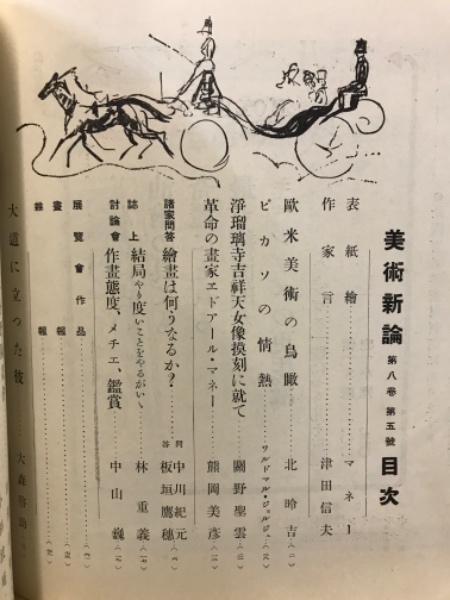 美術新論 第八巻 第五號 目次
表紙繪 マネー
作家言 津田信夫
歐米美術の鳥瞰 北昤吉
ピカソの情熱 ワルドマル・ジョルジュ
淨瑠璃寺吉祥天女像摸刻に就て 關野聖雲
革命の畫家エドアール・マネー 熊岡美彦
諸家問答 繪畫は何うなるか? 問 中川紀元 答 板垣鷹穗
誌上討論會 結局やり度いことをやるがいゝ 林重義
作畫態度、メチエ、鑑賞 中山巍
展覽會作品
畫報
雜報
大道に立つた彼 大森啓助